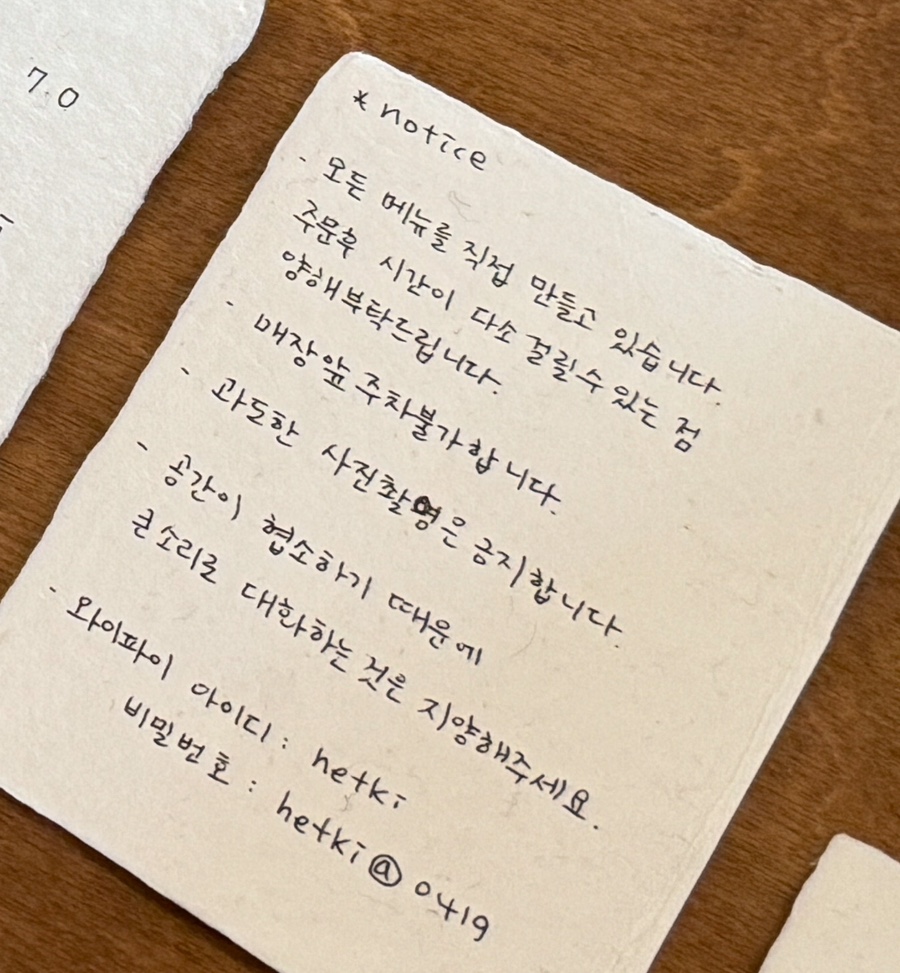 7.0
* notice
- 모든 메뉴를 직접 만들고 있습니다.
주문후 시간이 다소 걸릴수 있는 점
양해부탁드립니다.
- 매장앞 주차불가합니다.
- 과도한 사진촬영은 금지합니다.
- 공간이 협소하기 때문에
큰소리로 대화하는 것은 지양해주세요.
- 와이파이 아이디 : hetki
비밀번호 : hetki@0419